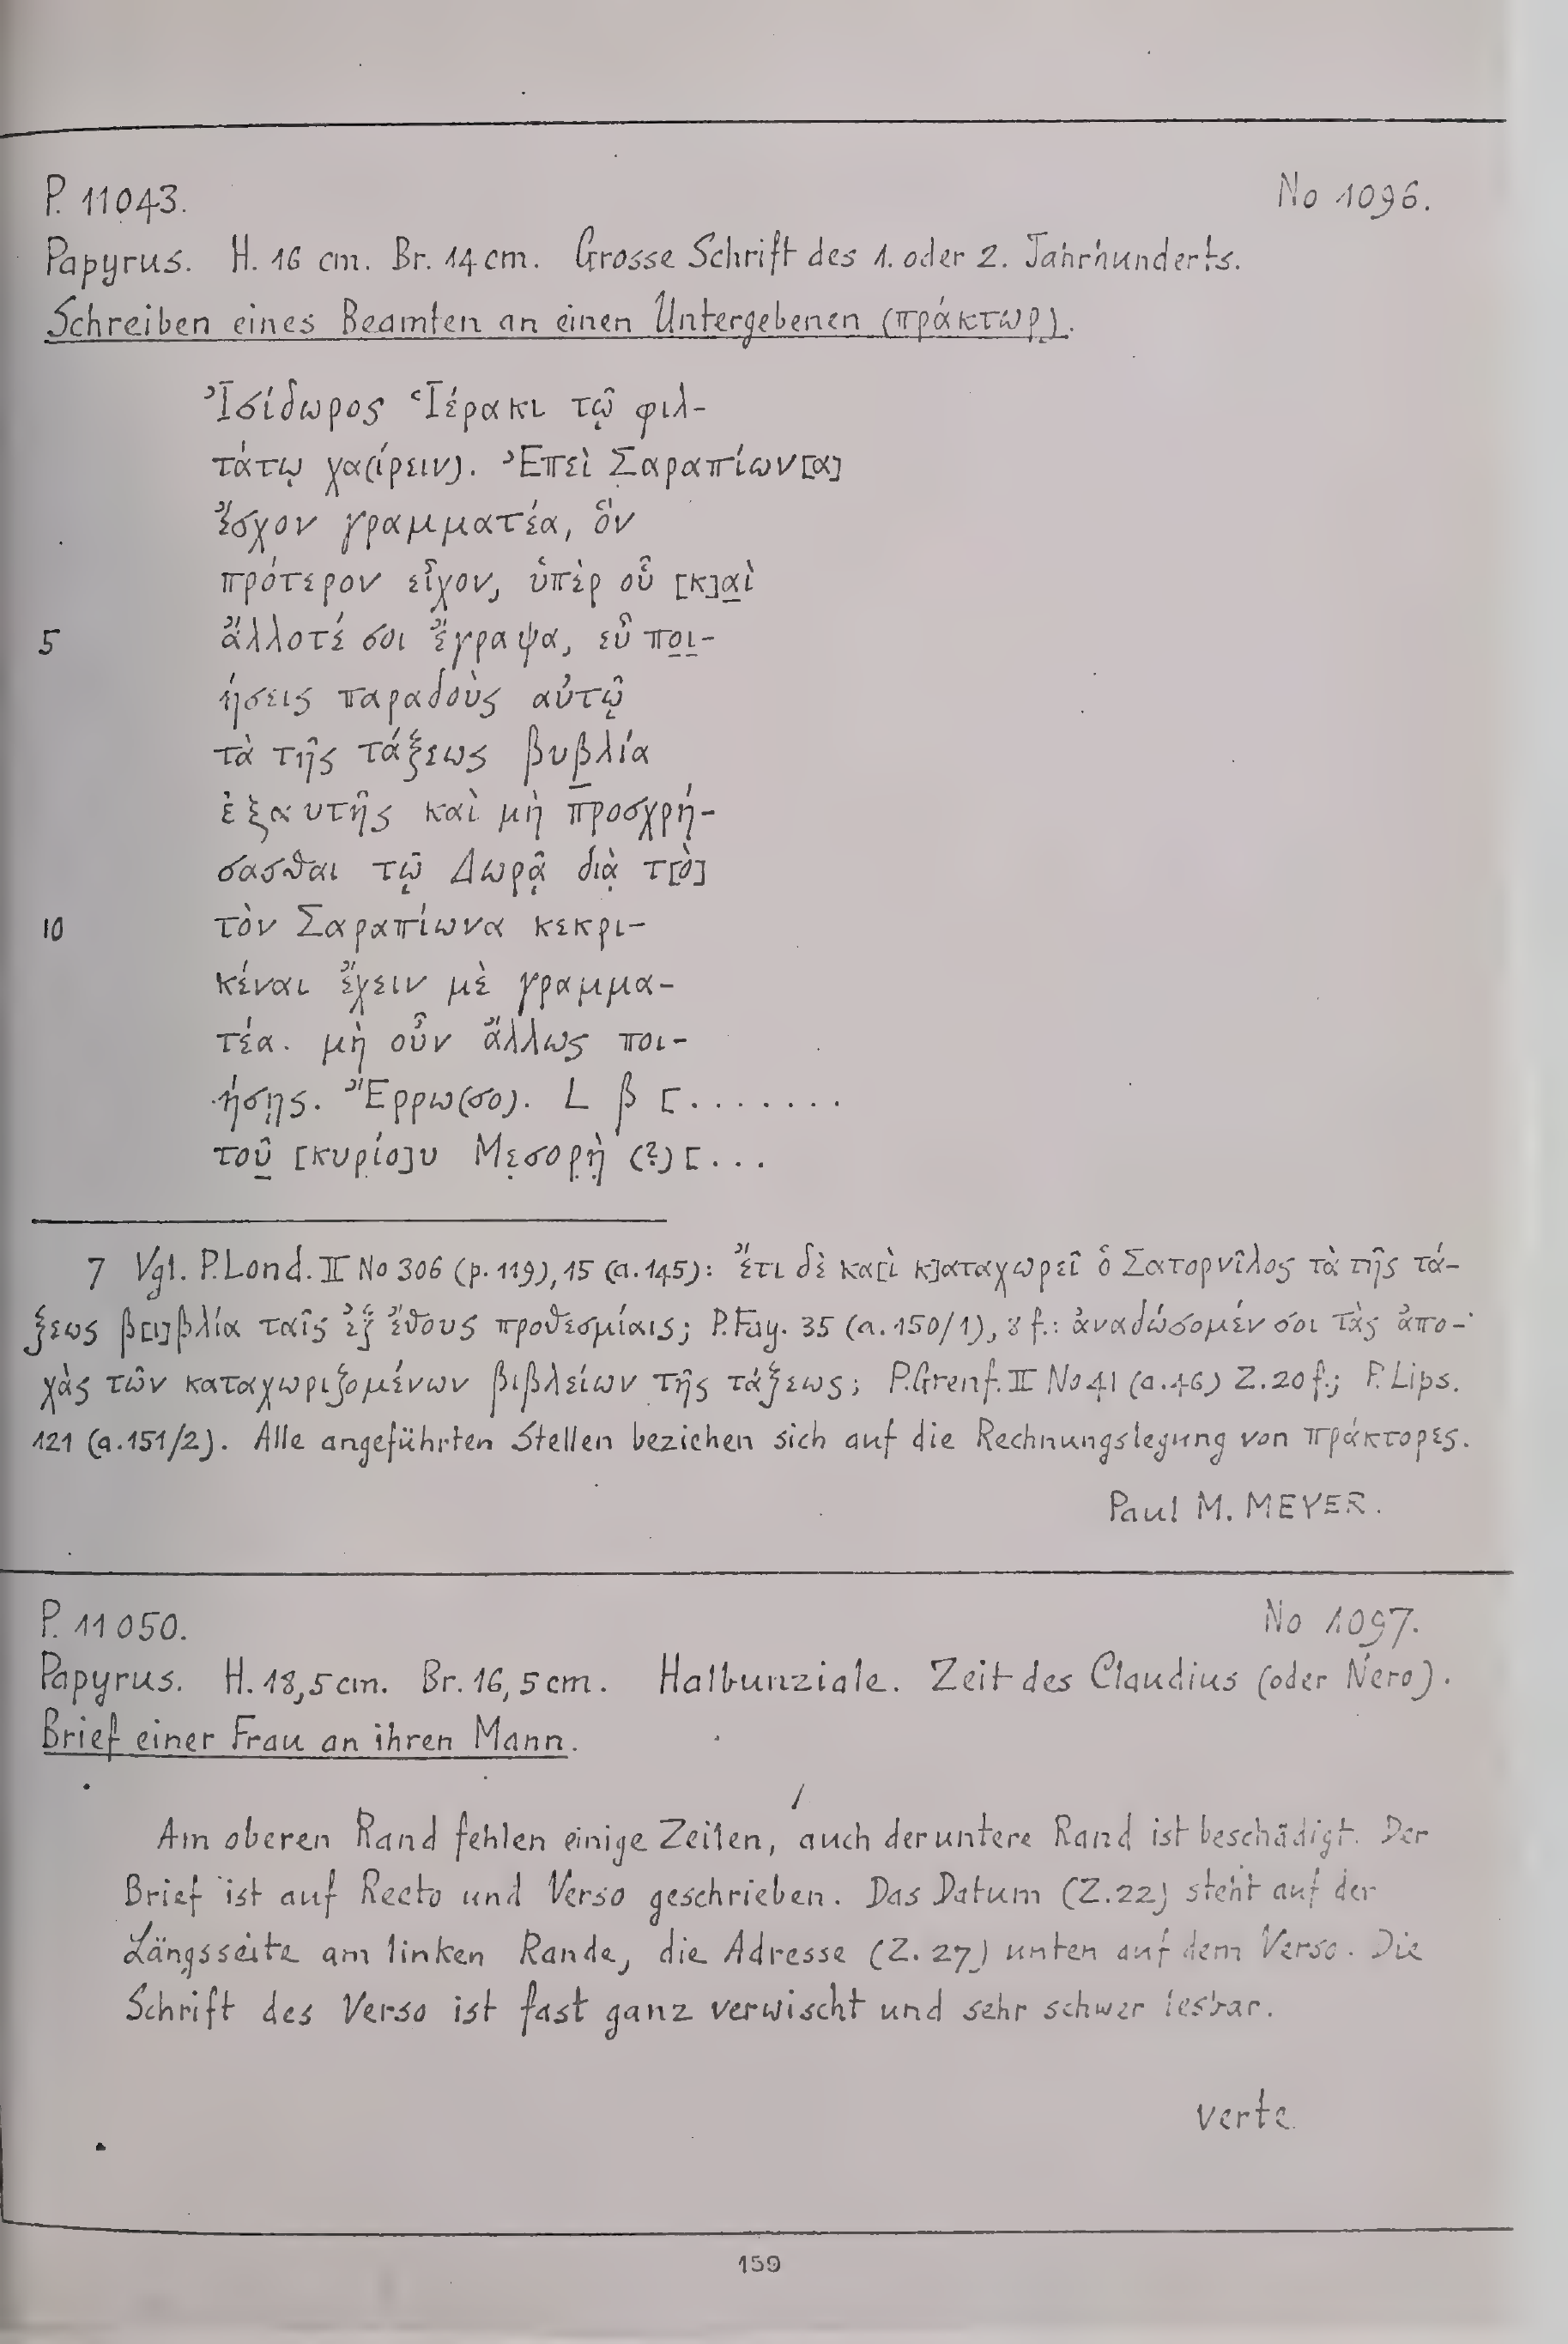 P. 11043. No 1096.
Papyrus. H. 16 cm. Br. 14 cm. Grosse Schrift des 1. oder 2. Jahrhunderts.
Schreiben eines Beamten an einen Untergebenen (πράκτωρ).
Ἰσίδωρος Ἱέρακι τῷ φιλ-
τάτῳ χα(ίρειν). Ἐπεὶ Σαραπίων[α]
ἔσχον γραμματέα, ὃν
πρότερον εἶχον, ὑπὲρ οὗ [κ]α̲ὶ
5 ἄλλοτέ σοι ἔγραψα, εὖ πο̲ι̲-
ήσεις παραδοὺς αὐτῷ
τὰ τῆς τάξεως βυβ̲λία
ἐξαυτῆς καὶ μὴ προσχρή-
σασθαι τῷ Δωρᾷ διὰ̣ τ[ὸ]
10 τὸν Σαραπίωνα κεκρι-
κέναι ἔχειν μὲ γραμμα-
τέα. μὴ οὖν ἄλλως ποι-
ήσῃς. Ἔρρω(σο). L β [.......
τοῦ̲ [κυρίο]υ Με̣σορ̣ὴ̣ (?) [...
7 Vgl. P. Lond. II No 306 (p. 119), 15 (a. 145): ἔτι δὲ κα[ὶ κ]αταχωρεῖ ὁ Σατορνῖλος τὰ τῆς τά-
ξεως β[ι]βλία ταῖς ἐξ ἔθους προθεσμίαις; P. Fay. 35 (a. 150/1), 8 f.: ἀναδώσομέν σοι τὰς ἀπο-
χὰς τῶν καταχωριζομένων βιβλείων τῆς τάξεως; P. Grenf. II No 41 (a. 46) Z. 20 f.; P. Lips.
121 (a. 151/2). Alle angeführten Stellen beziehen sich auf die Rechnungslegung von πράκτορες.
Paul M. MEYER.
P. 11050. No 1097.
Papyrus. H. 18,5 cm. Br. 16,5 cm. Halbunziale. Zeit des Claudius (oder Nero).
Brief einer Frau an ihren Mann.
Am oberen Rand fehlen einige Zeilen, auch der untere Rand ist beschädigt. Der
Brief ist auf Recto und Verso geschrieben. Das Datum (Z. 22) steht auf der
Längsseite am linken Rande, die Adresse (Z. 27) unten auf dem Verso. Die
Schrift des Verso ist fast ganz verwischt und sehr schwer lesbar.
verte
159